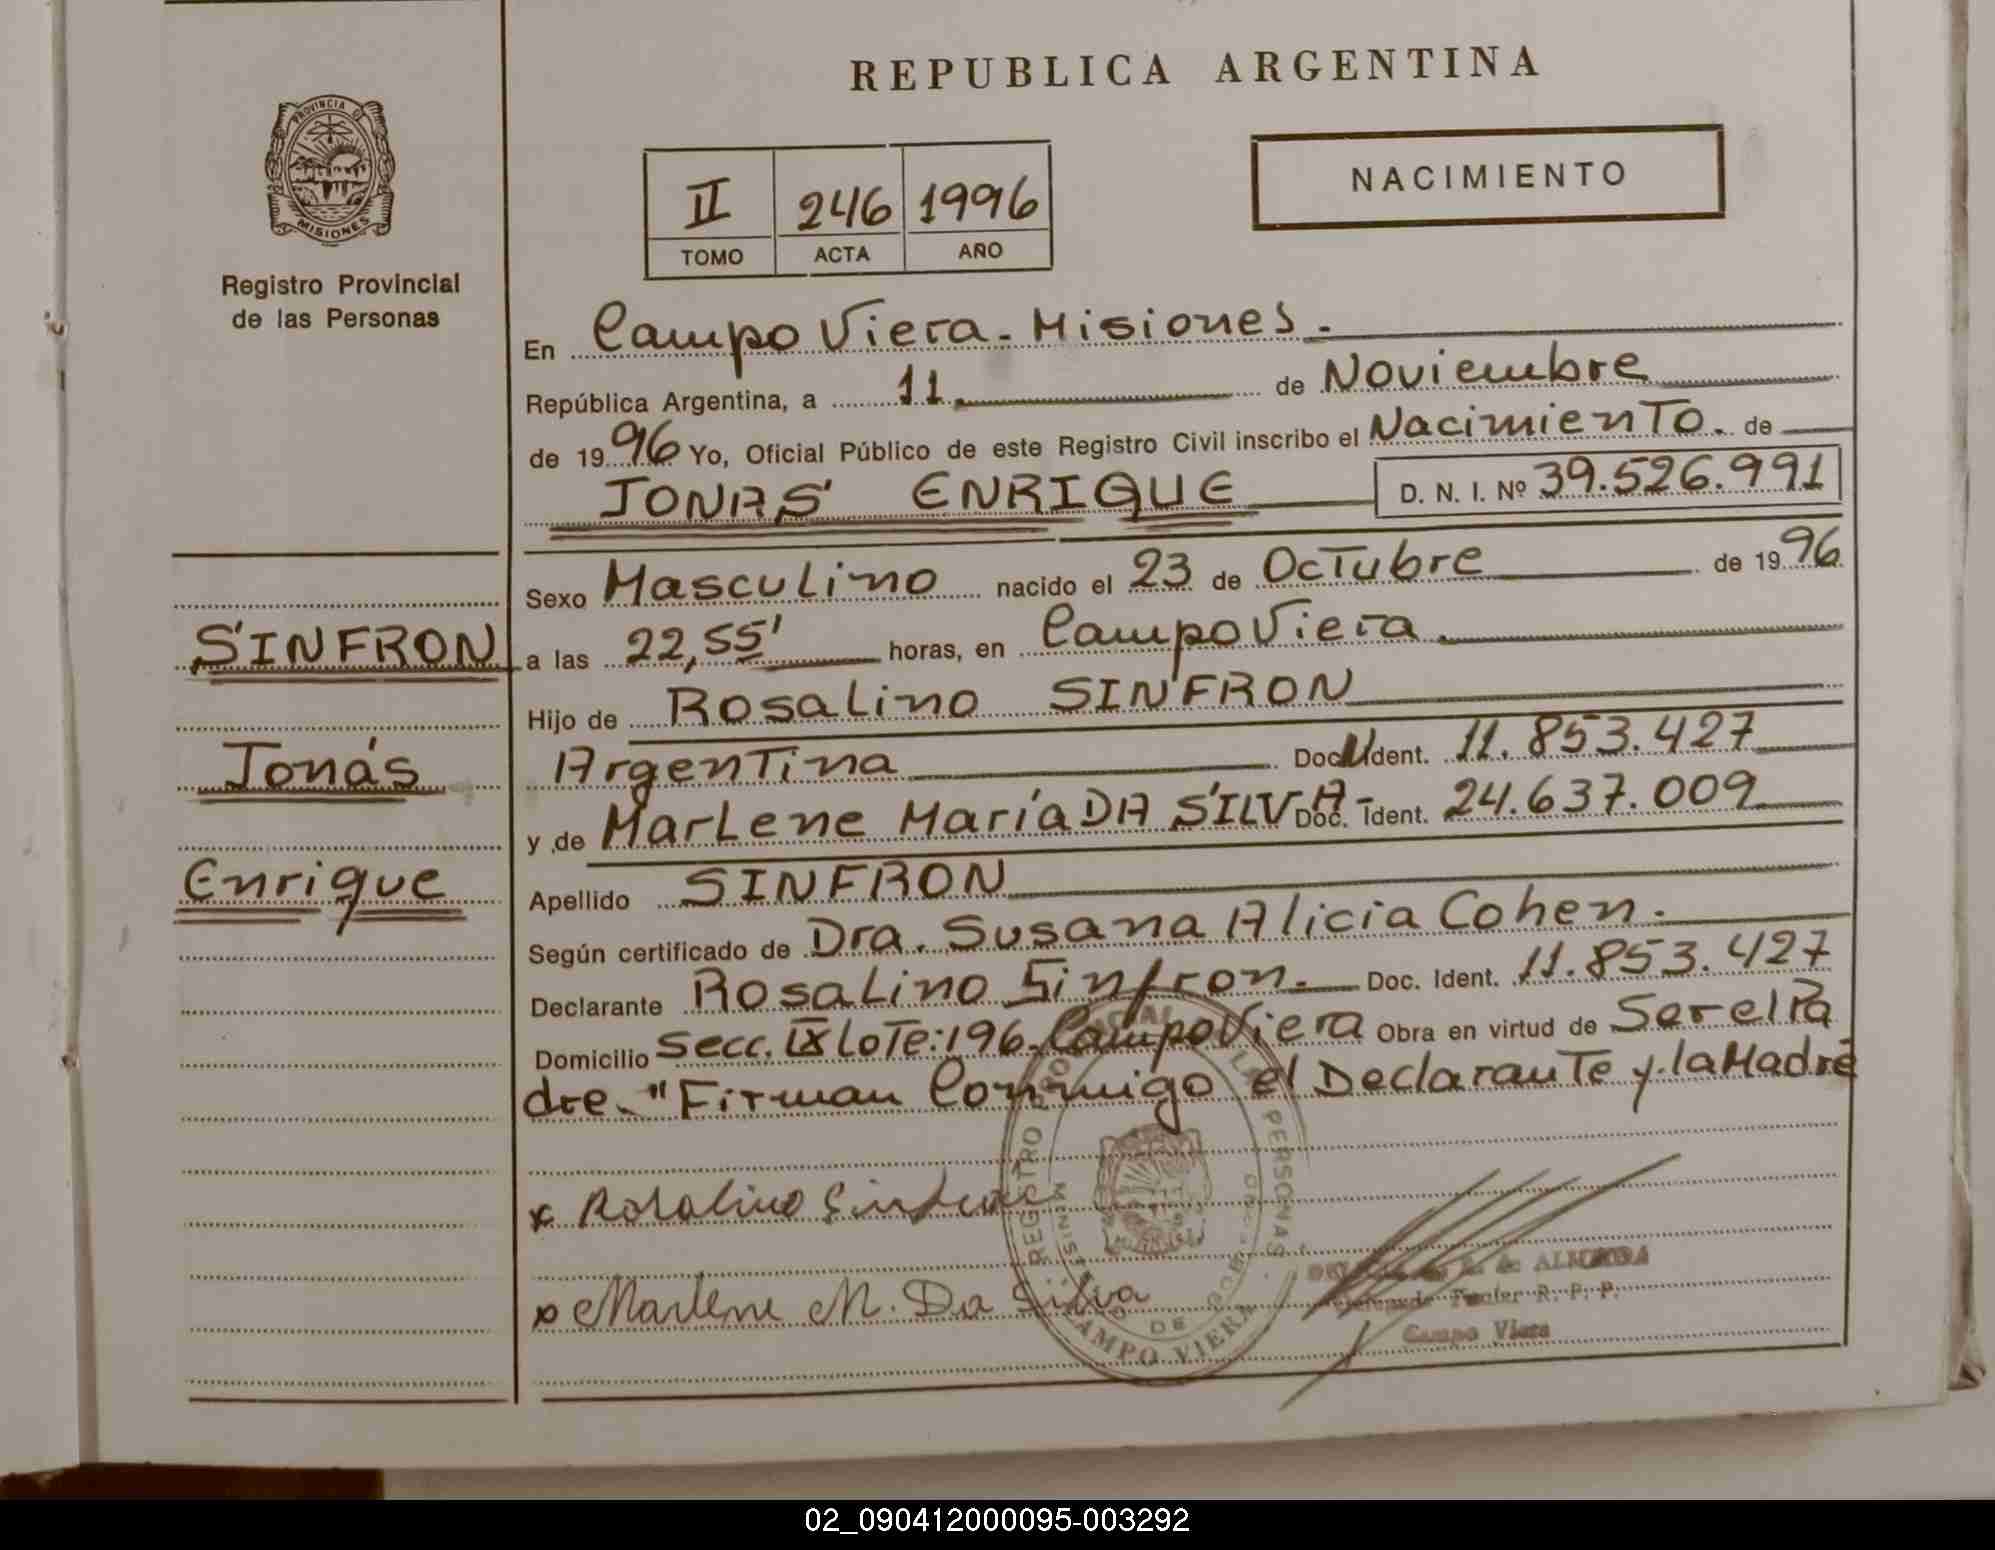 REPUBLICA ARGENTINA
PROVINCIA DE
MISIONES
Registro Provincial
de las Personas
II 246 1996
TOMO ACTA AÑO
NACIMIENTO
En Campo Viera - Misiones.
República Argentina, a 11 de Noviembre
de 1996 Yo, Oficial Público de este Registro Civil inscribo el Nacimiento. de
JONAS ENRIQUE D. N. I. Nº 39.526.991
Sexo Masculino nacido el 23 de Octubre de 1996
SINFRON
a las 22,55' horas, en Campo Viera.
Hijo de Rosalino SINFRON
Jonás
Argentina Doc. Ident. 11.853.427
y de Marlene María DA SILVA - Doc. Ident. 24.637.009
Enrique
Apellido SINFRON
Según certificado de Dra. Susana Alicia Cohen.
Declarante Rosalino Sinfron. Doc. Ident. 11.853.427
Domicilio Secc. IX Lote: 196. Campo Viera Obra en virtud de Ser el Pa
dre. " Firman Conmigo el Declarante y la Madre
x Rosalino Sinfron
x Marlene M. Da Silva
REGISTRO PERSONAS
MISIONES
CAMPO VIERA
de ALMEIDA
Titular R. P. P.
Campo Viera
02_090412000095-003292